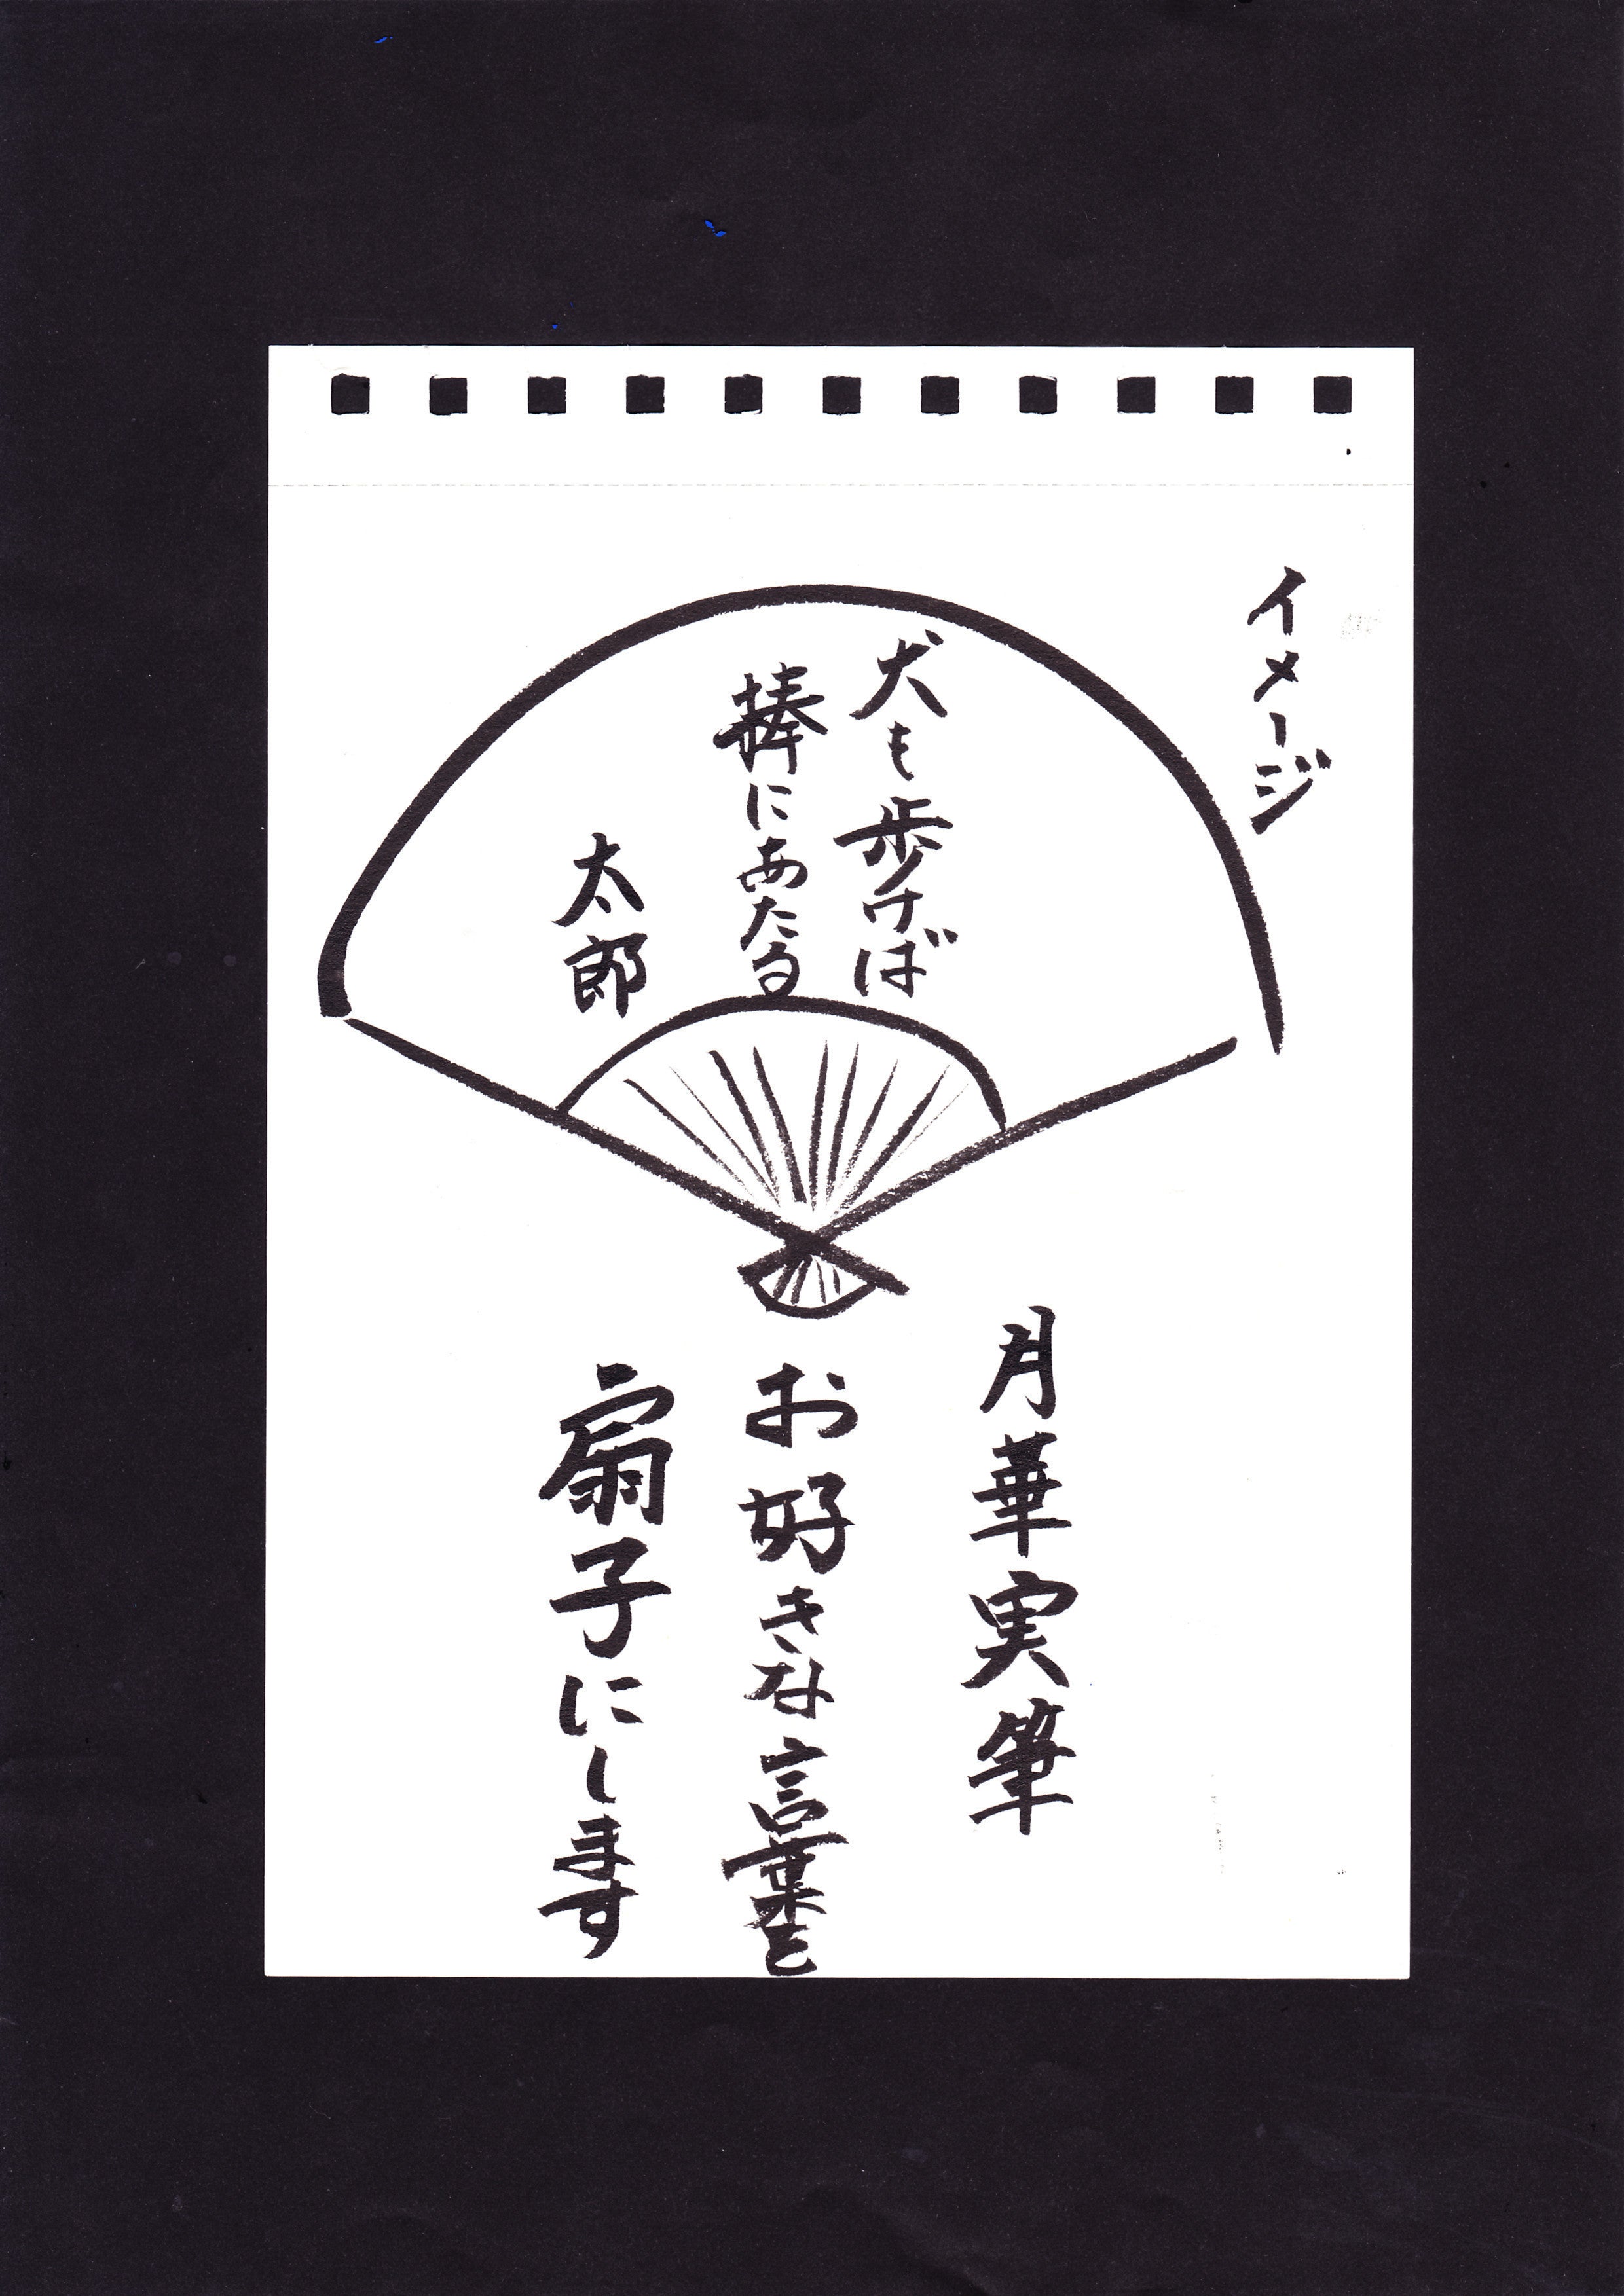 イメージ
犬も歩けば
棒にあたる
太郎
月華実筆
お好きな言葉を
扇子にします